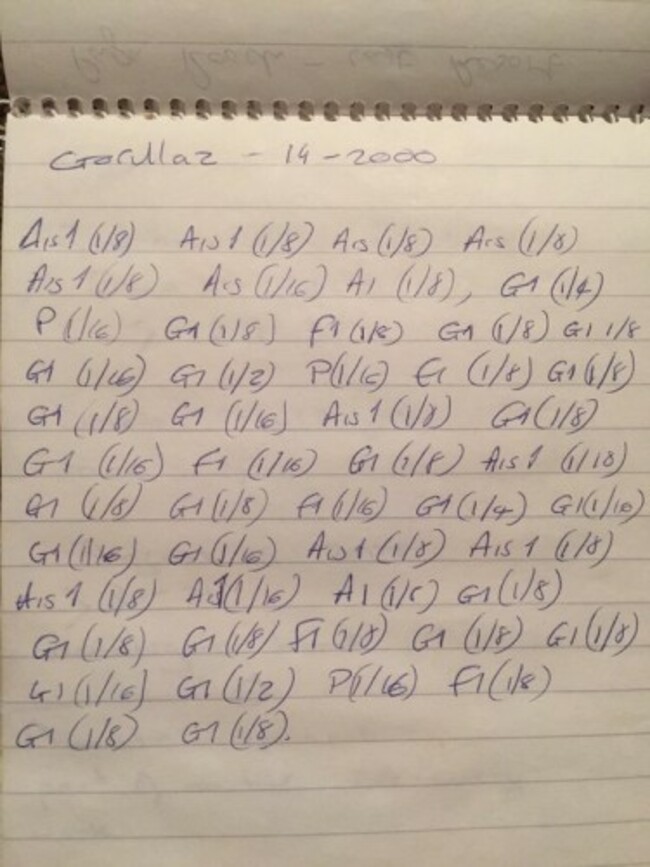 Gorillaz - 14-2000
Ais1 (1/8) Ais1 (1/8) Ais (1/8) Ais (1/8)
Ais1 (1/8) Ais (1/16) A1 (1/8), G1 (1/4)
P (1/16) G1 (1/8) F1 (1/8) G1 (1/8) G1 1/8
G1 (1/16) G1 (1/2) P(1/16) F1 (1/8) G1(1/8)
G1 (1/8) G1 (1/16) Ais1 (1/8) G1(1/8)
G1 (1/16) F1 (1/16) G1 (1/8) Ais1 (1/18)
G1 (1/8) G1 (1/8) F1 (1/16) G1 (1/4) G1(1/16)
G1(1/16) G1 (1/16) Ais1 (1/8) Ais1 (1/8)
Ais1 (1/8) (1/16) A1 G1 (1/8)
G1 (1/8) G1 (1/8) F1 (1/8) G1 (1/8) G1(1/8)
G1 (1/16) G1 (1/2) P(1/16) F1(1/8)
G1 (1/8) G1 (1/8).